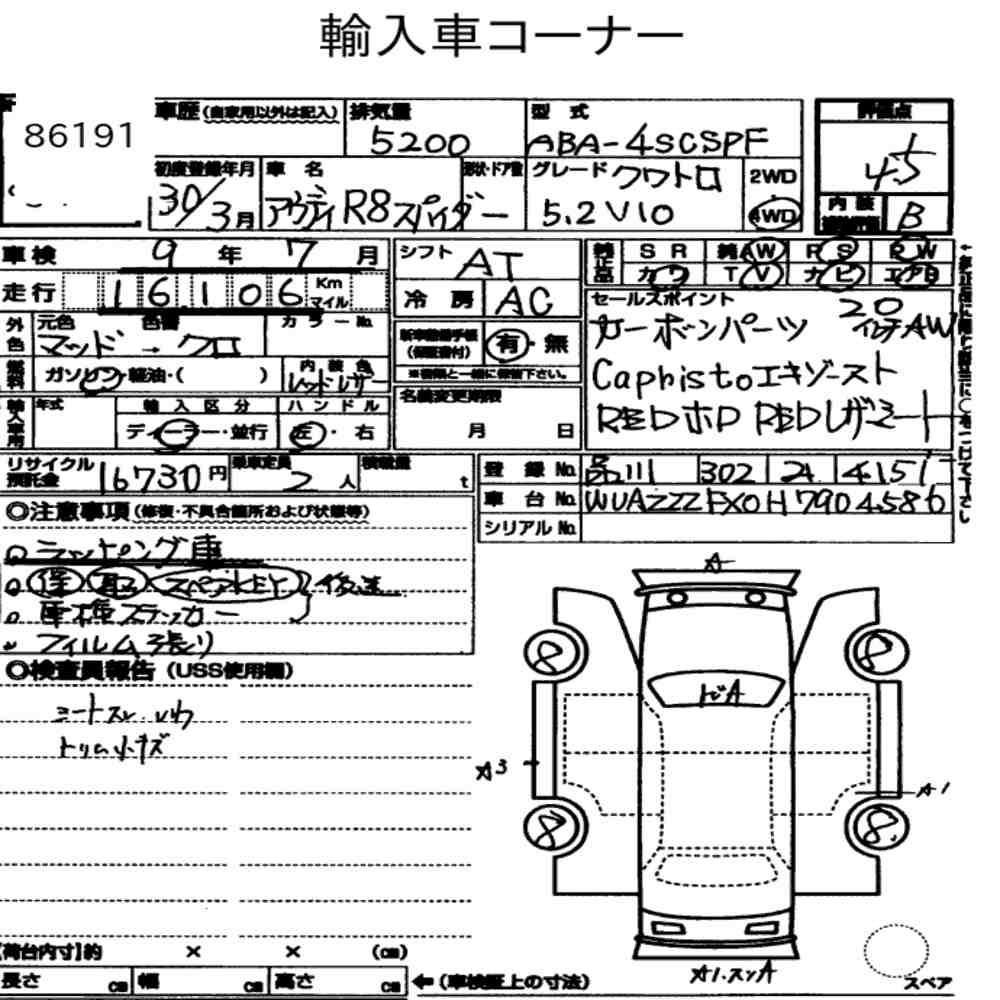 輸入車コーナー
86191
車歴 (自家用以外は記入) 排気量 型 式 評価点
5200 ABA-4SCSPF 4.5
初度登録年月 車 名 形状・ドア数 グレード クワトロ 2WD
30/3月 アウディ R8 スパイダー 5.2 V10 4WD
内装 B
車検 9 年 7 月 シフト AT 純正品 S R 純 AW P S P W
カワ T V ナビ エアB
走行 1 6 1 0 6 Km マイル 冷 房 AC
セールスポイント
カーボンパーツ 20 インチAW
Caphistoエキゾースト
REDホロ REDレザーシート
外色 元色 色番 カラーNo.
マッド → クロ
新車整備手帳 (保証書付) 有・無
※書類と一緒に保管下さい。
燃料 ガソリン・軽油・( ) 内装色 レッドレザー
名義変更期限
月 日
輸入車用 年式 輸入区分 ハンドル
ディーラー・並行 左・右
リサイクル預託金 16730円 乗車定員 2 人 積載量 t
登録No. 品川 302 ス 4151
車台No. WUAZZZFX0H7904586
シリアルNo.
◎注意事項 (修復・不具合箇所および状態等)
○ ラッピング車
○ 保 取 スペアKEY 後送
○ 車種ステッカー
フィルム張り
◎検査員報告 (USS使用欄)
シートスレ、シワ
トリム小キズ
A
8 8
トビA
A3
A1
8 8
【荷台内寸】約 × × (cm)
長さ cm 幅 cm 高さ cm ←(車検証上の寸法)
A1.スリA
スペア